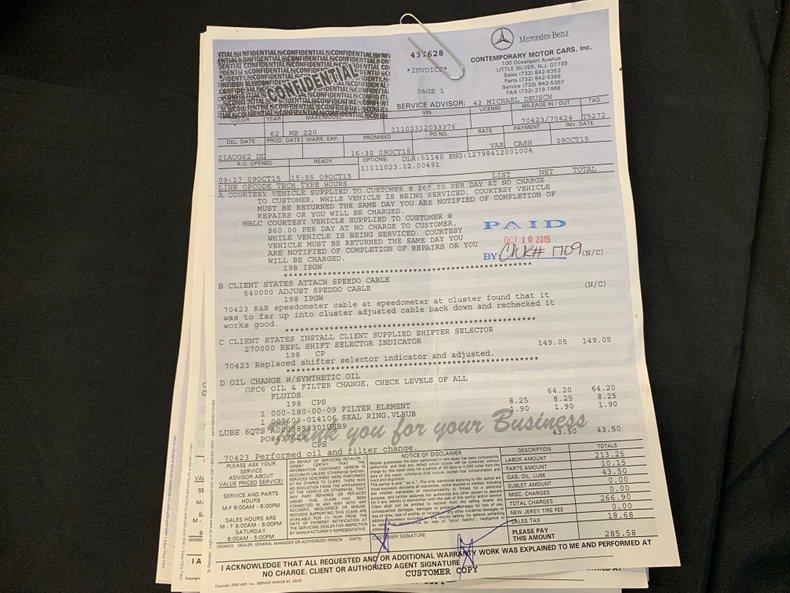 CONFIDENTIAL
437628
*INVOICE*
PAGE 1
Mercedes-Benz
CONTEMPORARY MOTOR CARS, Inc.
100 Oceanport Avenue
LITTLE SILVER, N.J. 07739
Sales (732) 842-5353
Parts (732) 842-5388
Service (732) 842-5357
FAX (732) 219-1868
SERVICE ADVISOR: 42 MICHAEL DEUSCH
COLOR YEAR VIN LICENSE MILEAGE IN / OUT TAG
62 MB 220 11102312033376 70423/70424 T5272
DEL. DATE PROD. DATE WARR. EXP. PROMISED PO NO. RATE PAYMENT INV. DATE
21AUG62 DG 16:30 09OCT15 VAR CASH 09OCT15
R.O. OPENED READY OPTIONS: DLR:51140 ENG:12798412001004
1)111023.12.00491
09:17 09OCT15 15:55 09OCT15
LINE OPCODE TECH TYPE HOURS LIST NET TOTAL
A COURTESY VEHICLE SUPPLIED TO CUSTOMER @ $60.00 PER DAY AT NO CHARGE
TO CUSTOMER, WHILE VEHICLE IS BEING SERVICED. COURTESY VEHICLE
MUST BE RETURNED THE SAME DAY YOU ARE NOTIFIED OF COMPLETION OF
REPAIRS OR YOU WILL BE CHARGED.
MBLC COURTESY VEHICLE SUPPLIED TO CUSTOMER @
$60.00 PER DAY AT NO CHARGE TO CUSTOMER,
WHILE VEHICLE IS BEING SERVICED. COURTESY
VEHICLE MUST BE RETURNED THE SAME DAY YOU
ARE NOTIFIED OF COMPLETION OF REPAIRS OR YOU
WILL BE CHARGED.
198 IPGW (N/C)
PAID
OCT 10 2015
BY: CHK# 1709
B CLIENT STATES ATTACH SPEEDO CABLE
540000 ADJUST SPEDDO CABLE
198 IPGW (N/C)
70423 R&R speedometer cable at speedometer at cluster found that it
was to far up into cluster adjusted cable back down and rechecked it
works good.
C CLIENT STATES INSTALL CLIENT SUPPLIED SHIFTER SELECTOR
270000 REPL SHIFT SELECTOR INDICATOR
198 CP 149.05 149.05
70423 Replaced shifter selector indicator and adjusted.
D OIL CHANGE W/SYNTHETIC OIL
OFC6 OIL & FILTER CHANGE, CHECK LEVELS OF ALL
FLUIDS
198 CPS 64.20 64.20
1 000-180-00-09 FILTER ELEMENT 8.25 8.25 8.25
1 007603-014106 SEAL RING,VLRUB 1.90 1.90 1.90
LUBE 6QTS
PO#437628
CPS 43.50 43.50
70423 Performed oil and filter change.
Thank you for your Business
PLEASE ASK YOUR
SERVICE
ADVISOR ABOUT
VALUE PRICED SERVICE!
SERVICE AND PARTS
HOURS
M-F 8:00AM - 6:00PM
SALES HOURS ARE
M - F 9:00AM - 8:00PM
SATURDAY
9:00AM - 5:00PM
NOTICE OF DISCLAIMER
DESCRIPTION TOTALS
LABOR AMOUNT 213.25
PARTS AMOUNT 10.15
GAS, OIL, LUBE 43.50
SUBLET AMOUNT 0.00
MISC. CHARGES 0.00
TOTAL CHARGES 266.90
NEW JERSEY TIRE FEE 0.00
SALES TAX 18.68
PLEASE PAY
THIS AMOUNT 285.58
(SIGNED) DEALER, GENERAL MANAGER OR AUTHORIZED PERSON (DATE)
SIGNATURE
I ACKNOWLEDGE THAT ALL REQUESTED AND/OR ADDITIONAL WARRANTY WORK WAS EXPLAINED TO ME AND PERFORMED AT
NO CHARGE. CLIENT OR AUTHORIZED AGENT SIGNATURE
CUSTOMER COPY